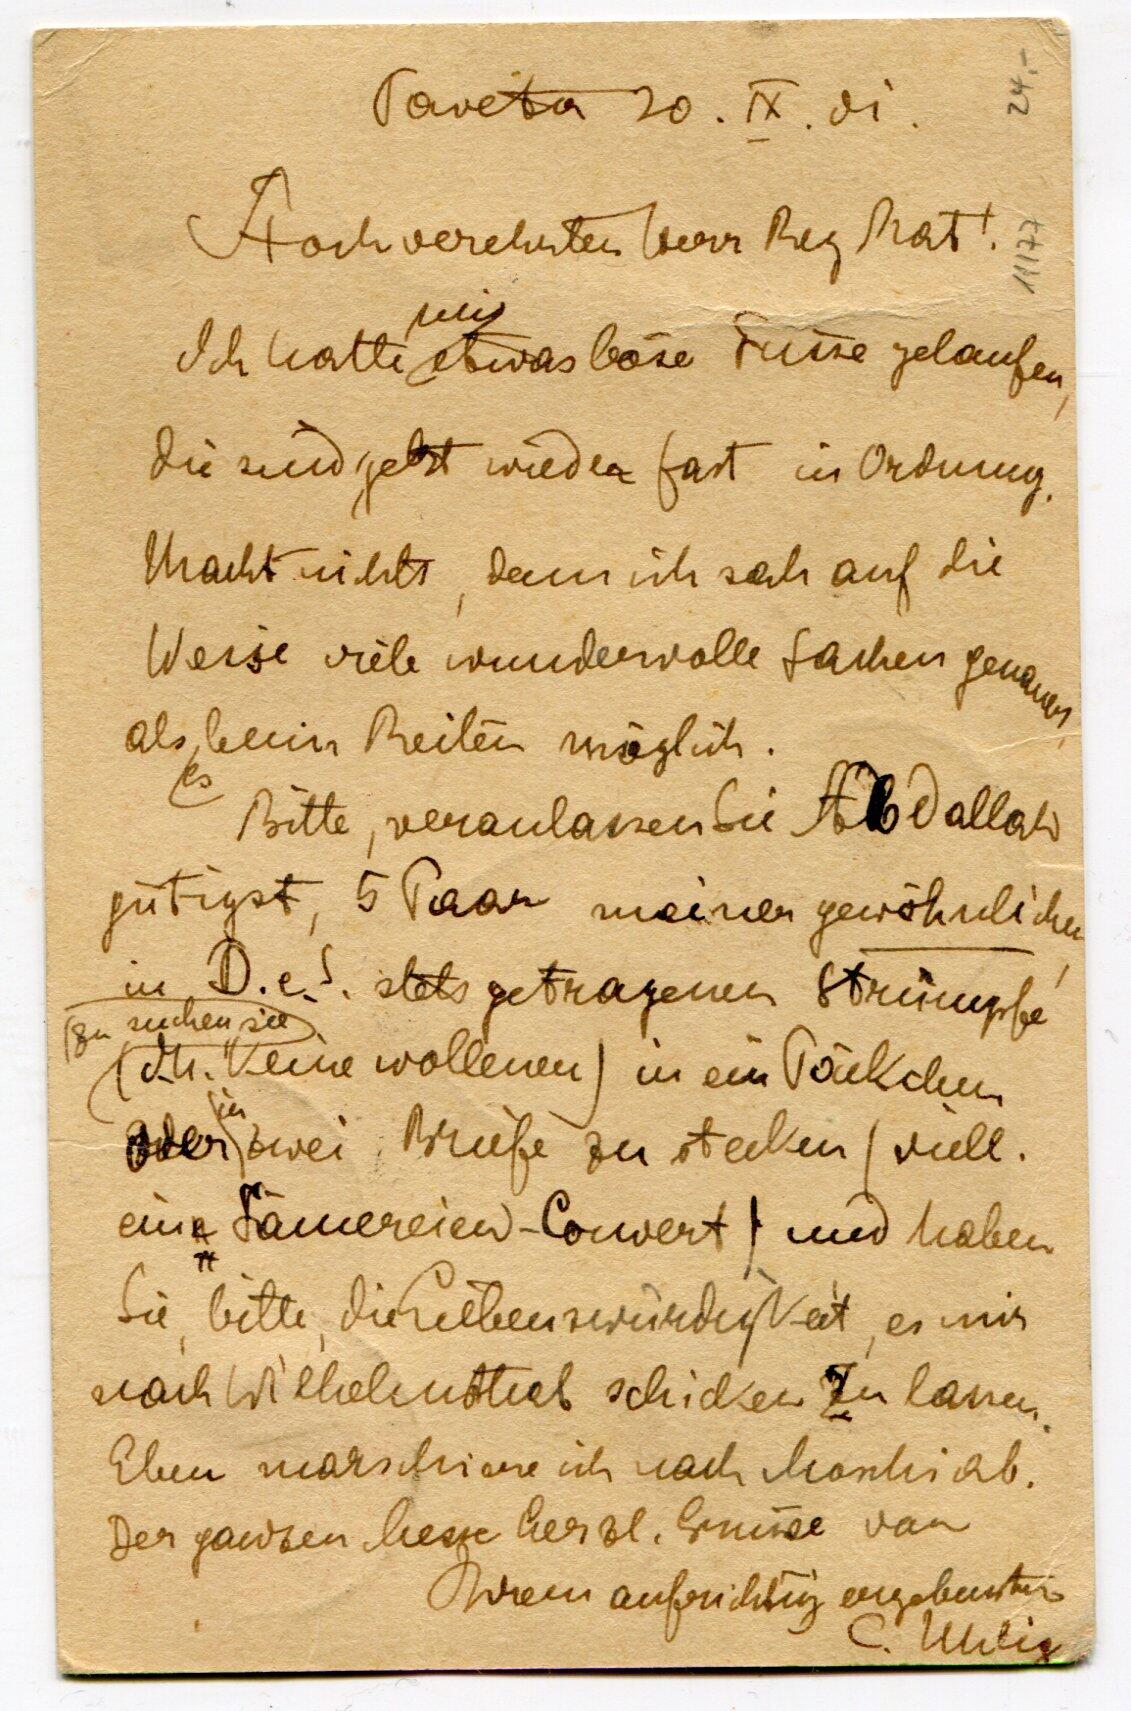 Taveta 20. IX. 01.
24.-
11177
Hochverehrter Herr Reg Rat!
mir
Ich hatte etwas böse Füsse gelaufen,
die sind jetzt wieder fast in Ordnung.
Macht nichts, denn ich sah auf die
Weise viele wundervolle Sachen genauer,
als beim Reiten möglich.
es
Bitte, veranlassen Sie Abdallah
gütigst, 5 Paar meiner gewöhnlichen,
in D.e.S. stets getragenen Strümpfe
zu suchen, sie
(d.h. keine wollenen) in ein Päckchen
oder in zwei Briefe zu stecken (viell.
ein Sämereien-Convert) und haben
Sie, bitte, die Liebenswürdigkeit, es mir
nach Wilhelmsthal schicken zu lassen.
Eben marschiere ich nach Moschi ab.
Der ganzen Messe herzl. Grüsse von
Ihrem aufrichtig ergebensten
C. Uhlig